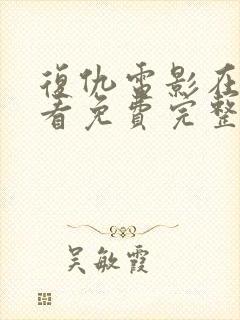 復仇雷影在
看免費完整
吴敏霞